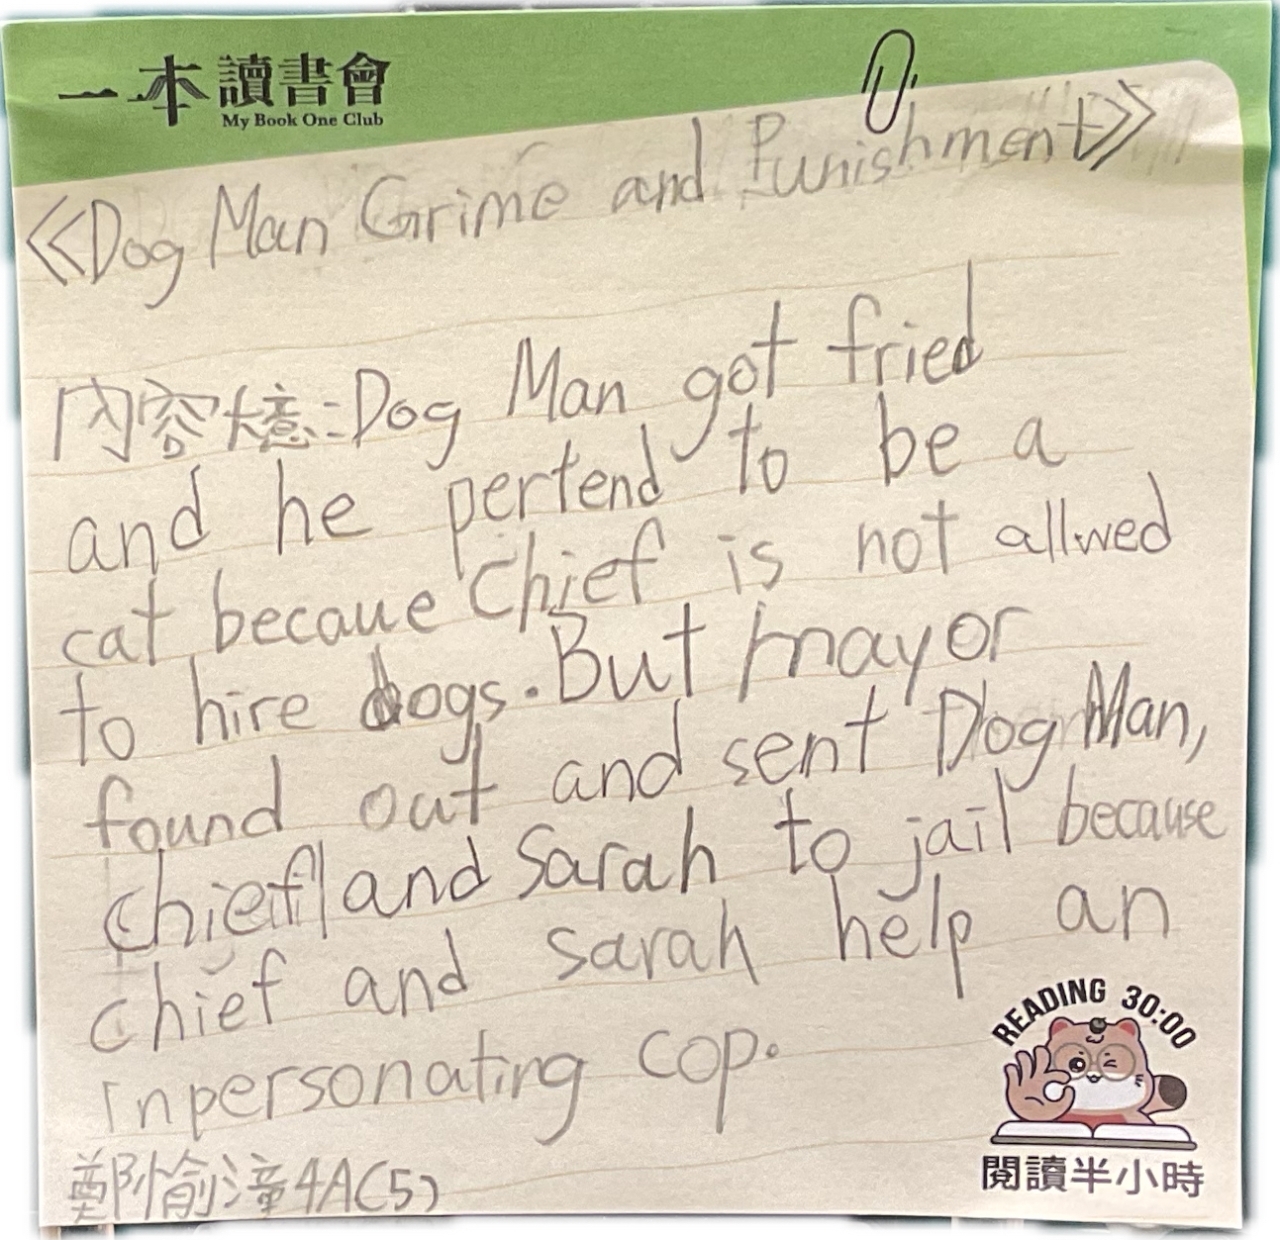 一本讀書會
My Book One Club
《Dog Man Grime and Punishment》
內容大意:Dog Man got fried
and he pertend to be a
cat becaue Chief is not allwed
to hire dogs. But mayor
found out and sent Dog Man,
chief and Sarah to jail because
chief and sarah help an
inpersonating cop.
鄭愉潼 4A(5)
READING 30:00
閱讀半小時